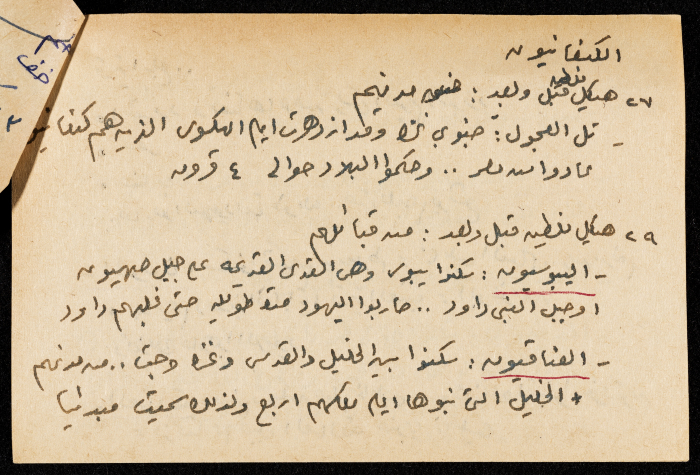 الكنعانيون
٢٧ هيكل فلسطين قبل وبعد : مدنهم
- تل العجول : جنوبي غزة وقد ازدهرت ايام الهكسوس الذين هم كنعانيو
عادوا من مصر .. وحكموا البلاد حوالي ٤ قرون
٢٩ هيكل فلسطين قبل وبعد : من قبائلهم
- اليبوسيون : سكنوا يبوس وهي القدس القديمة على جبل صهيون
او جبل النبي داود .. حاربوا اليهود مدة طويلة حتى غلبهم داود
- العناقيون : سكنوا بين الخليل والقدس وغزة وجت .. من مدنهم
* الخليل التي بنوها ايام ملكهم اربع ولذلك سميت
خف